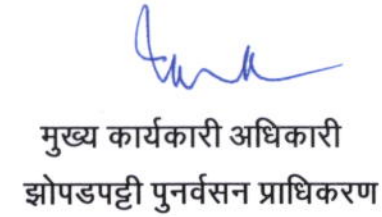 मुख्य कार्यकारी अधिकारी
झोपडपट्टी पुनर्वसन प्राधिकरण